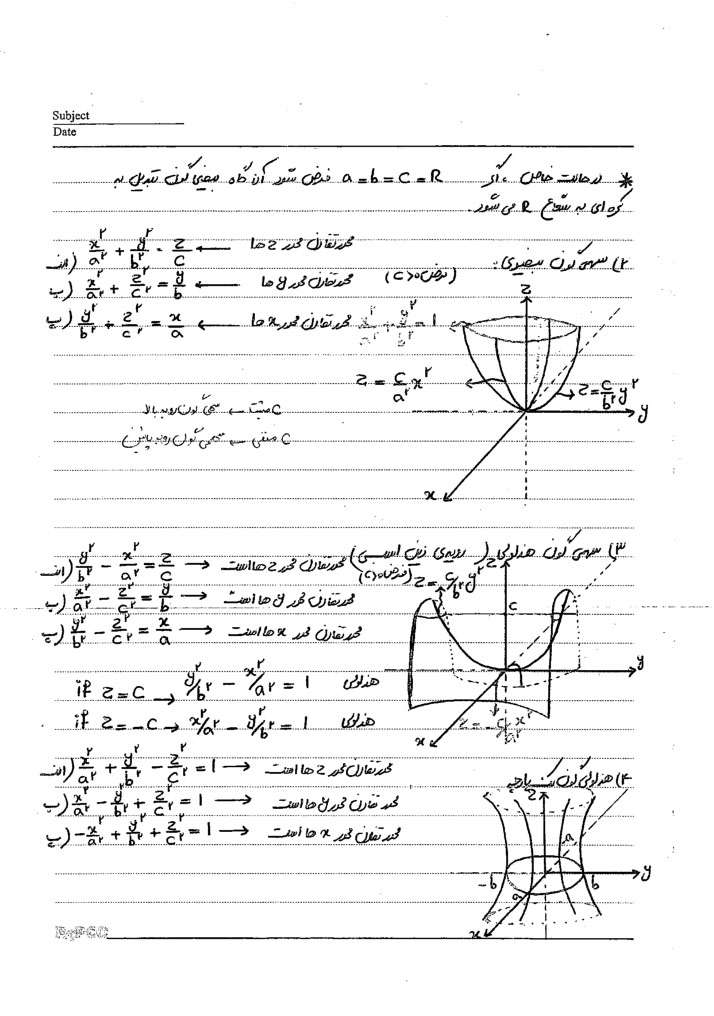 Subject
Date
* در حالت خاص، اگر a = b = c = R فرض شود آن گاه بیضی گون تبدیل به
کره ای به شعاع R می شود.
۲) سهمی گون بیضوی:
(فرض c>0)
الف) x²/a² + y²/b² = z/c ← محور تقارن محور z ها
ب) x²/a² + z²/c² = y/b ← محور تقارن محور y ها
پ) y²/b² + z²/c² = x/a ← محور تقارن محور x ها
x²/a² + y²/b² = 1
z
z = c/a² x²
z = c/b² y²
y
x
c مثبت ← سهمی گون رو به بالا
c منفی ← سهمی گون رو به پایین
۳) سهمی گون هذلولی (رویه ی زین اسبی)
(فرض c>0)
الف) y²/b² − x²/a² = z/c → محور تقارن محور z ها است
ب) x²/a² − z²/c² = y/b → محور تقارن محور y ها است
پ) y²/b² − z²/c² = x/a → محور تقارن محور x ها است
z
z = c/b² y²
c
y
x
z = −c/a² x²
if z = c → y²/b² − x²/a² = 1 هذلولی
if z = −c → x²/a² − y²/b² = 1 هذلولی
۴) هذلولی گون یک پارچه
الف) x²/a² + y²/b² − z²/c² = 1 → محور تقارن محور z ها است
ب) x²/a² − y²/b² + z²/c² = 1 → محور تقارن محور y ها است
پ) −x²/a² + y²/b² + z²/c² = 1 → محور تقارن محور x ها است
z
-a
-b
b
y
a
x